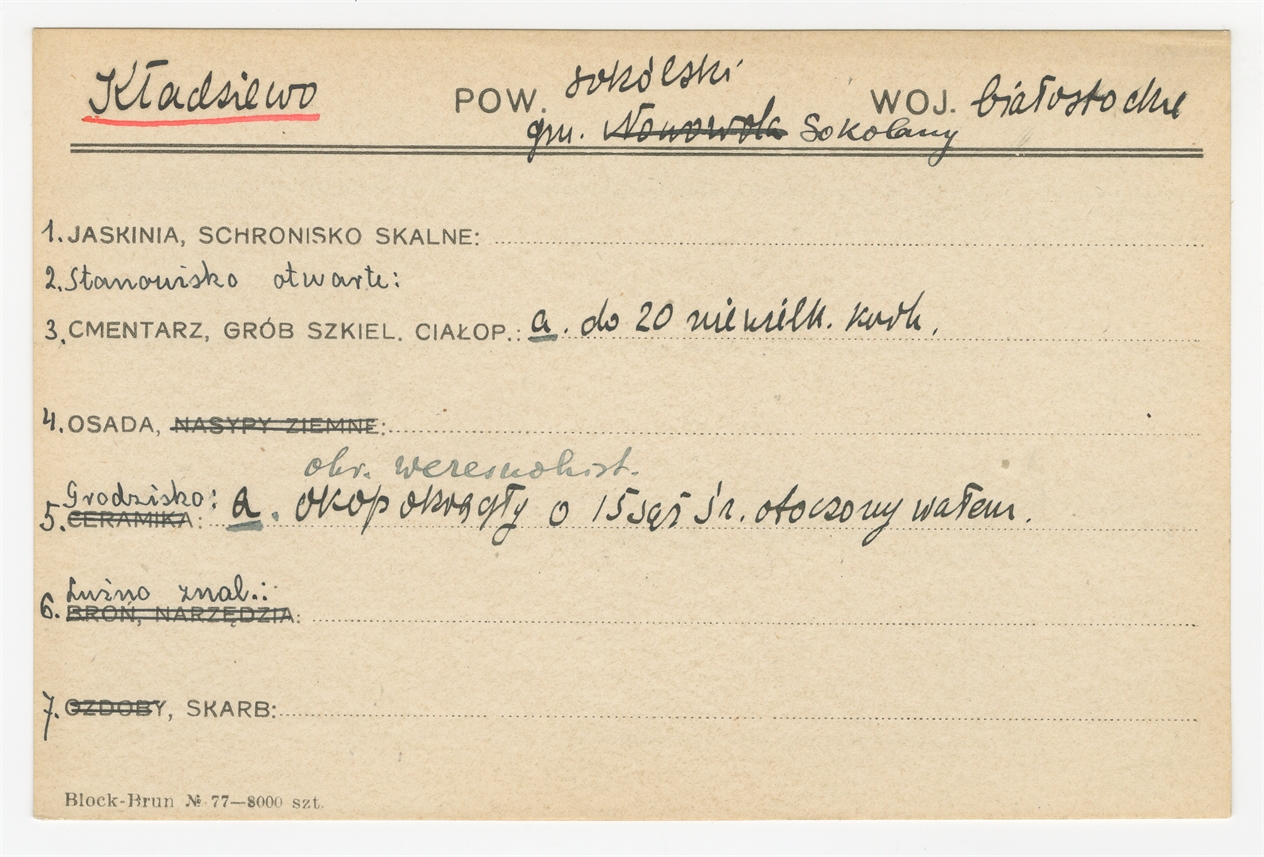 Kładziewo POW. sokólski WOJ. białostockie
gm. Nowowola Sokolany
1. JASKINIA, SCHRONISKO SKALNE:
2. Stanowisko otwarte:
3. CMENTARZ, GRÓB SZKIEL. CIAŁOP.: a. do 20 niewielk. kurh.
4. OSADA, NASYPY ZIEMNE:
okr. wczesnohist.
Grodzisko:
5. CERAMIKA: a. okop okrągły o 15 sąż śr. otoczony wałem.
Luźno znal.:
6. BROŃ, NARZĘDZIA:
7. OZDOBY, SKARB:
Block-Brun № 77—8000 szt.